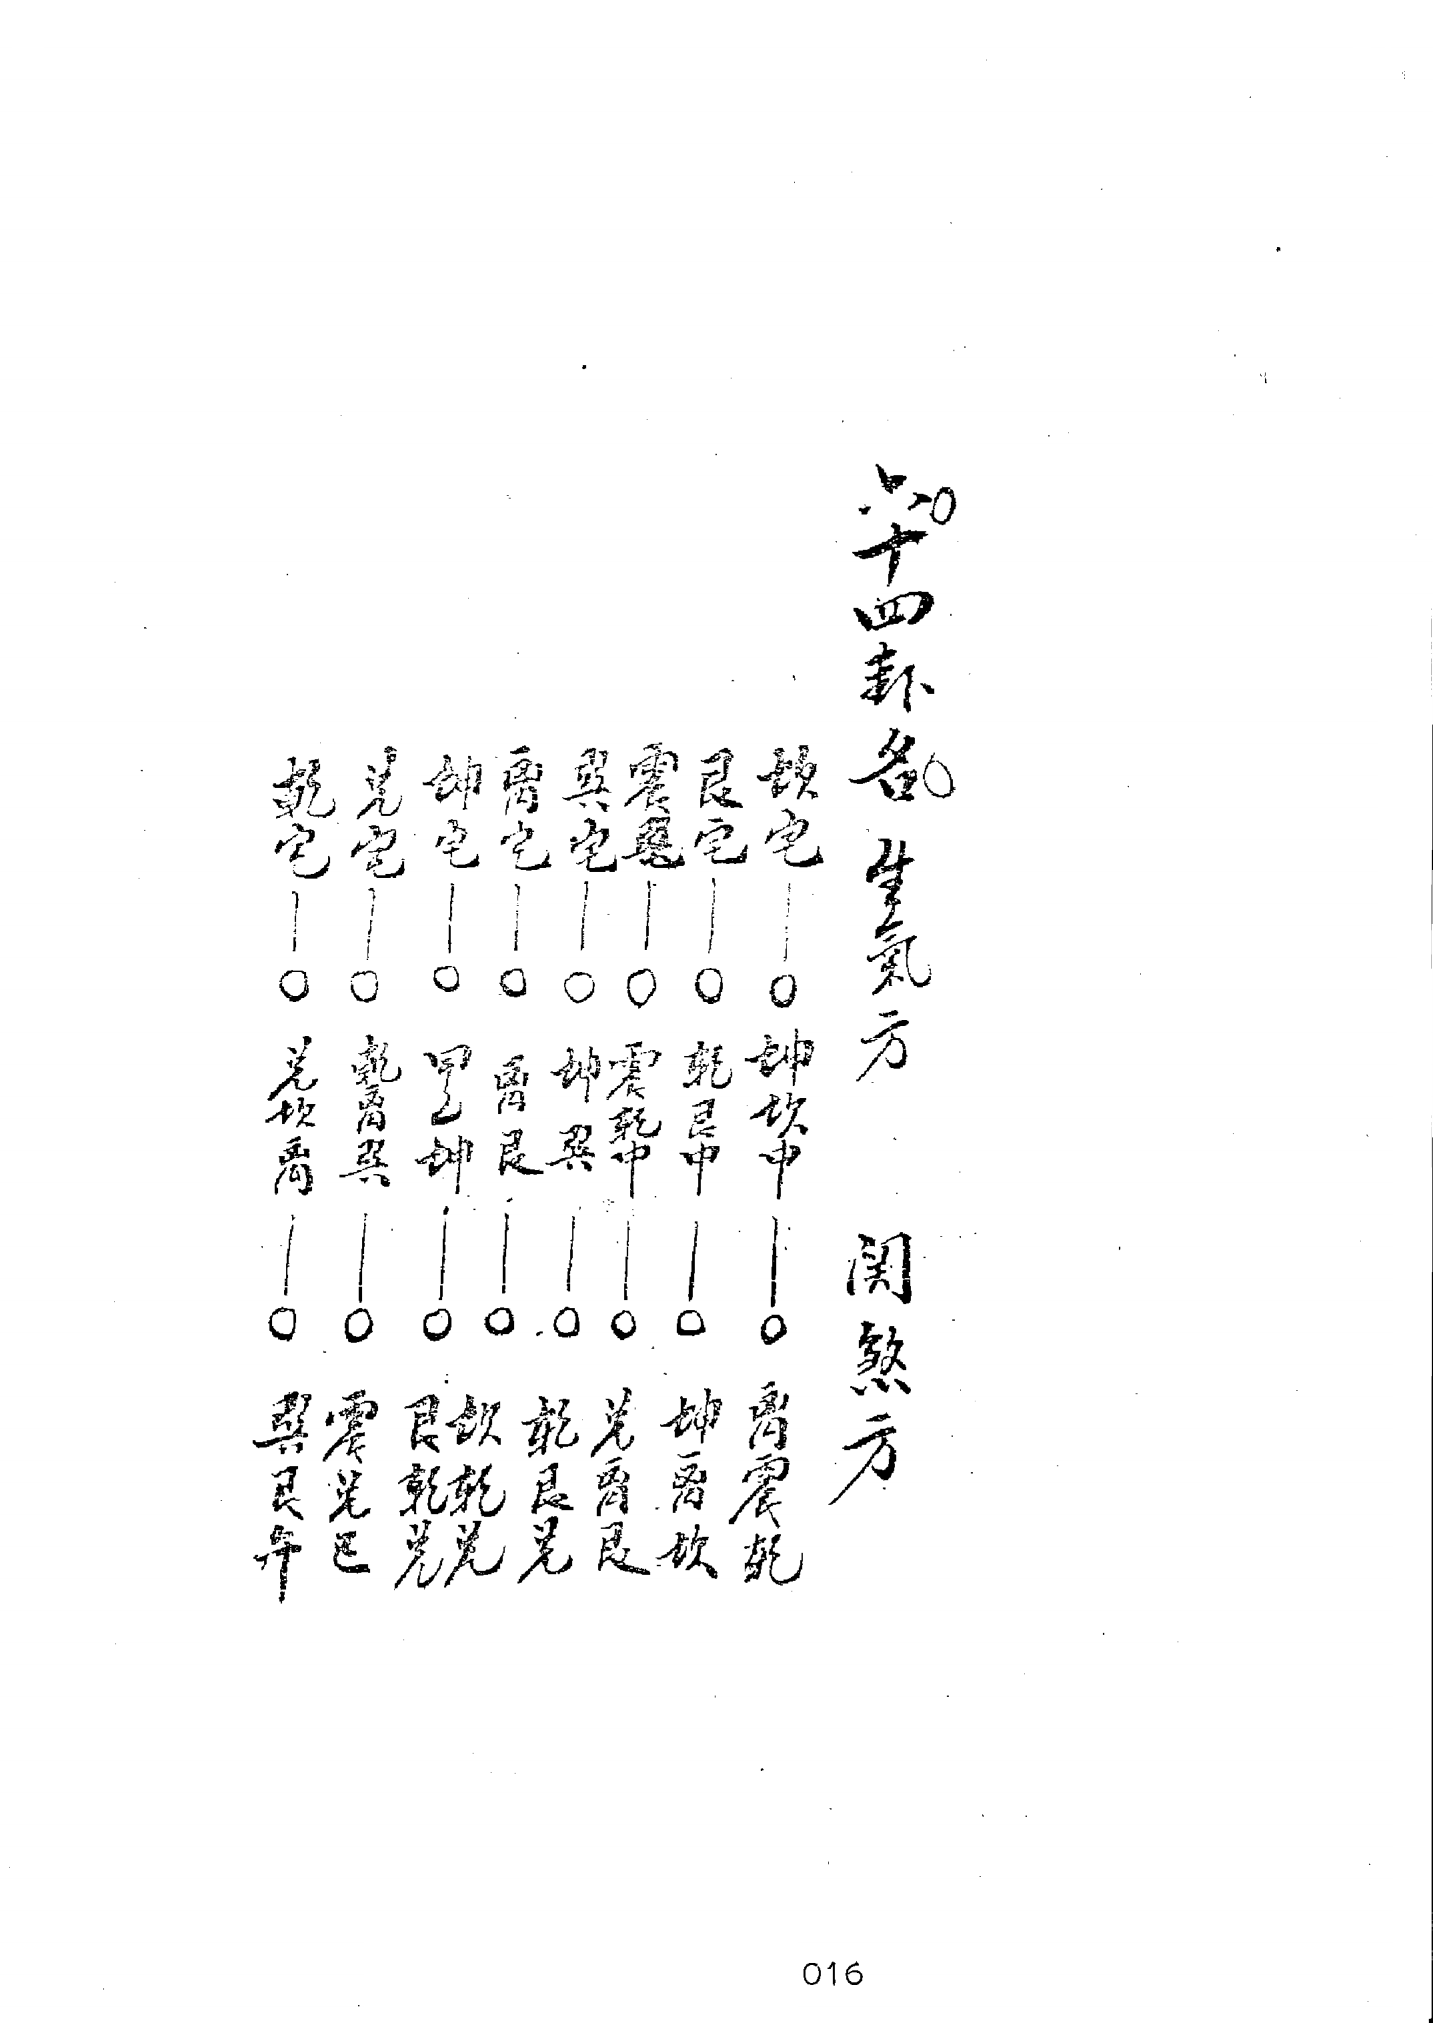 六十四卦名 生氣方 関煞方
坎宅—○坤坎中—○离震乾
艮宅—○乾艮中—○坤离坎
震宅—○震乾中—○兑离艮
巽宅—○坤巽—○乾艮兑
离宅—○离艮—○坎乾兑
坤宅—○坤—○艮乾兑
兑宅—○乾离巽—○震兑巳
乾宅—○兑坎离—○巽艮午
016